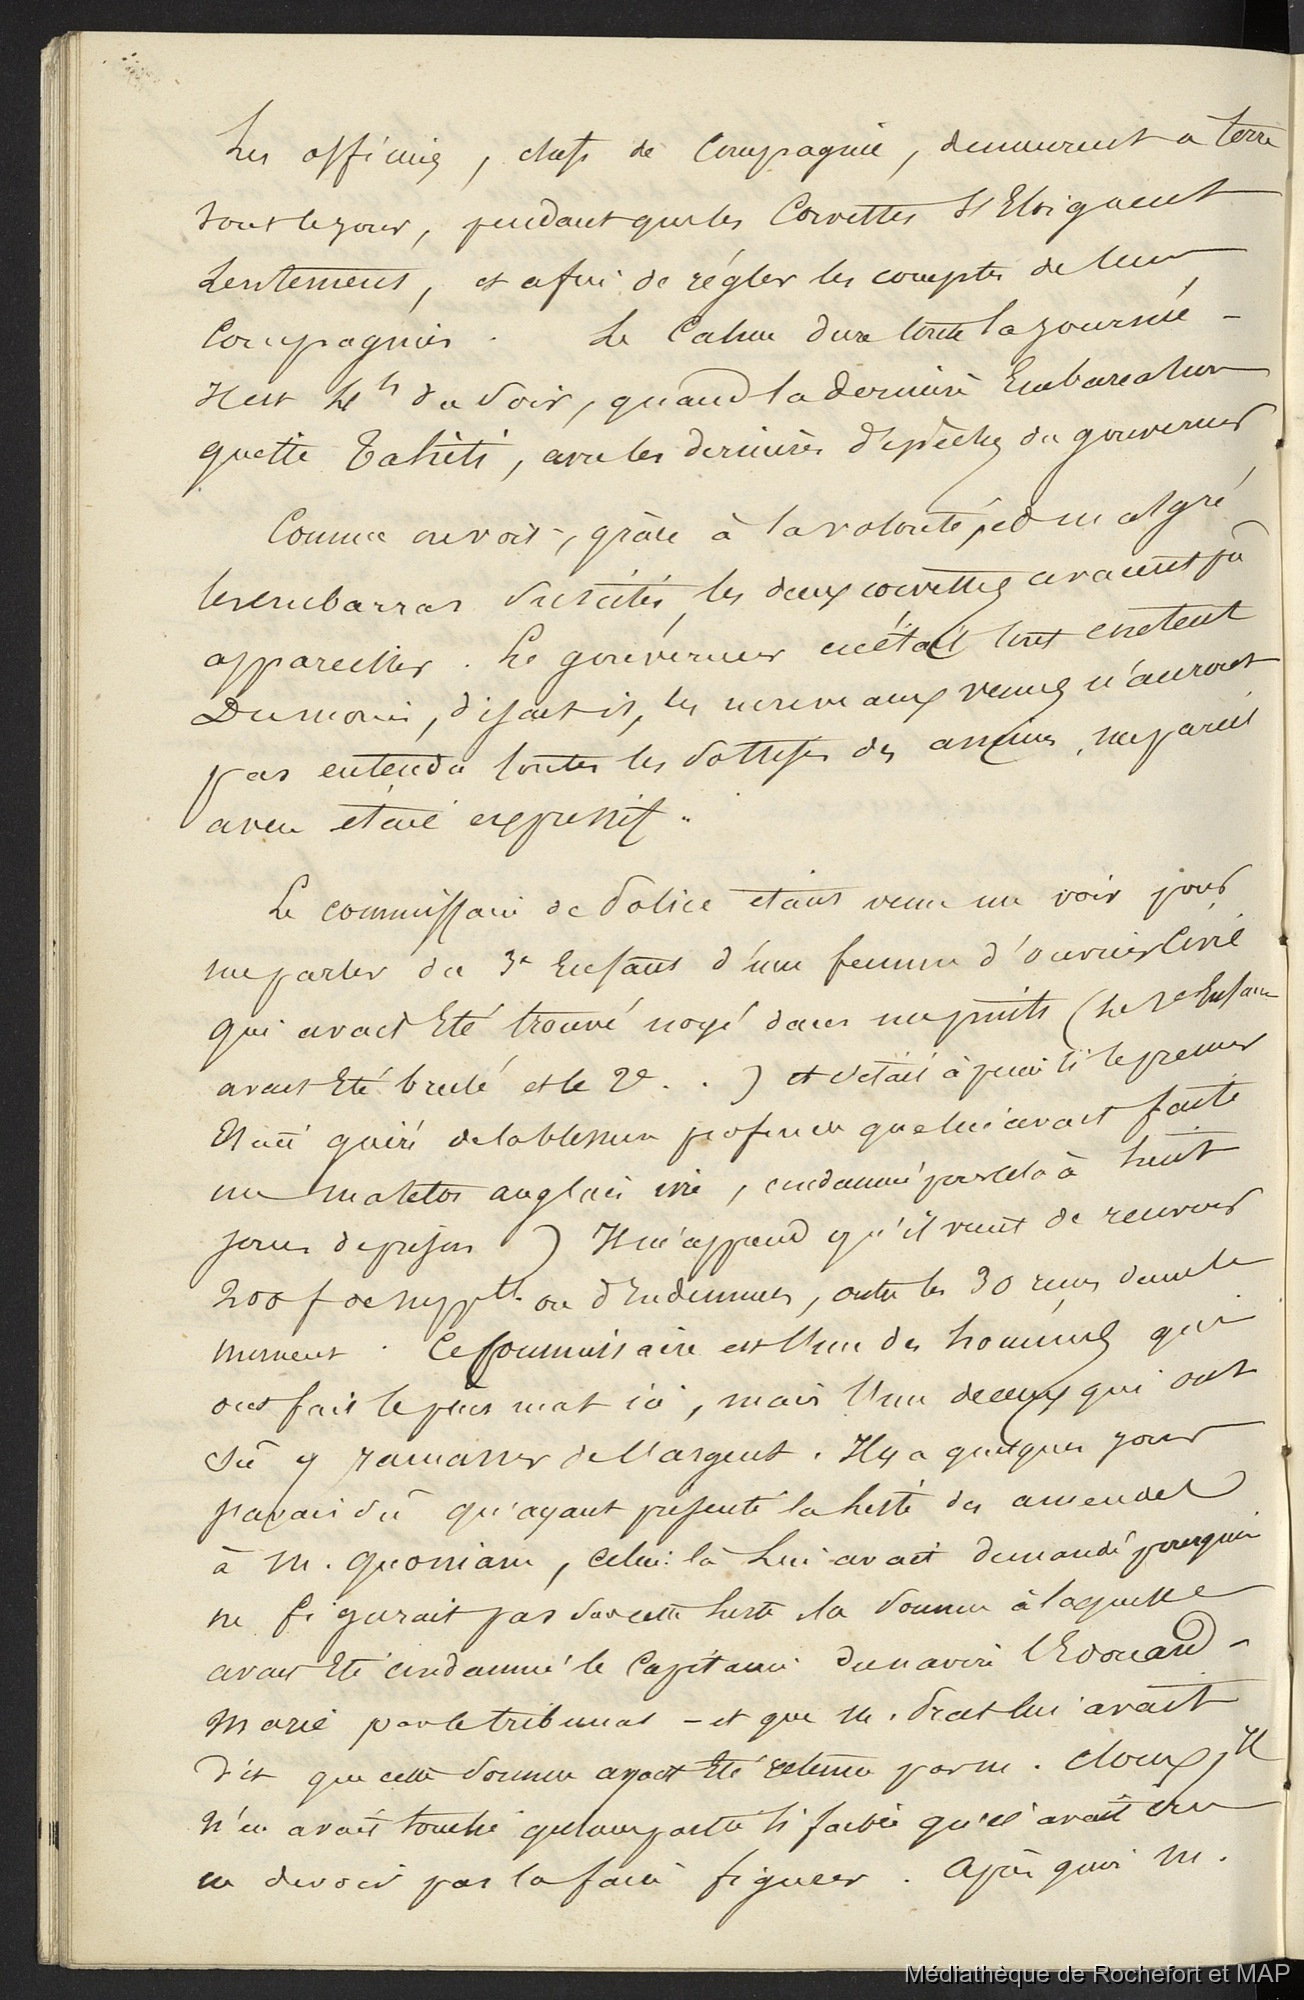 Les officiers, chefs de Compagnie, demeurent a terre
tout le jour, pendant que les Corvettes s'Eloignent
Lentement, et afin de régler les comptes de leur
Compagnies. Le Calme dure toute la journée -
Il est h du soir, quand la dernière Embarcation
quitte Tahiti, avec les dernières dépêches du gouverneur
Comme on voit, grâce à la volonté, et malgré
les embarras suscités, les deux corvettes avaient pû
appareiller. Le gouverneur en était tout content
Du moins, disait-il, les nouveaux venus n'auront
pas entendu toutes les sottises des anciens, un pareil
aveu était expressif.
Le commissaire de Police étant venu me voir pour
me parler du 3e Enfant d'une femme d'ouvrier Civil
qui avait Eté trouvé noyé dans un puits (le 1e Enfant
avait Eté brulé et le 2e . . ) et c'était à peine si le premier
Etait guéri de la blessure profonde que lui avait faite
un matelot anglais ivre, condamné pour cela à huit
jours de prison ) Il m'apprend qu'il vient de recevoir
200 f de ou d'Indemnes, outre les 30 reçus dans le
moment. Ce Commissaire est l'un des hommes qui
ont fait le plus mal ici, mais l'un de ceux qui ont
sû y ramasser de l'argent. Il y a quelques jours
j'avais sû qu'ayant présenté la liste des amendes
à M. Quoniam, celui-là lui avait demandé pourquoi
ne figurait pas sur cette liste la somme à laquelle
avait Eté condamné le Capitaine du navire l'Edouard -
Marie par le tribunal - et que M. lui avait
dit que cette somme ayant Eté retenue par M. , Il
n'en avait touché qu'une partie si faible qu'il avait cru
ne devoir pas la faire figurer. Après quoi M.
Médiathèque de Rochefort et MAP